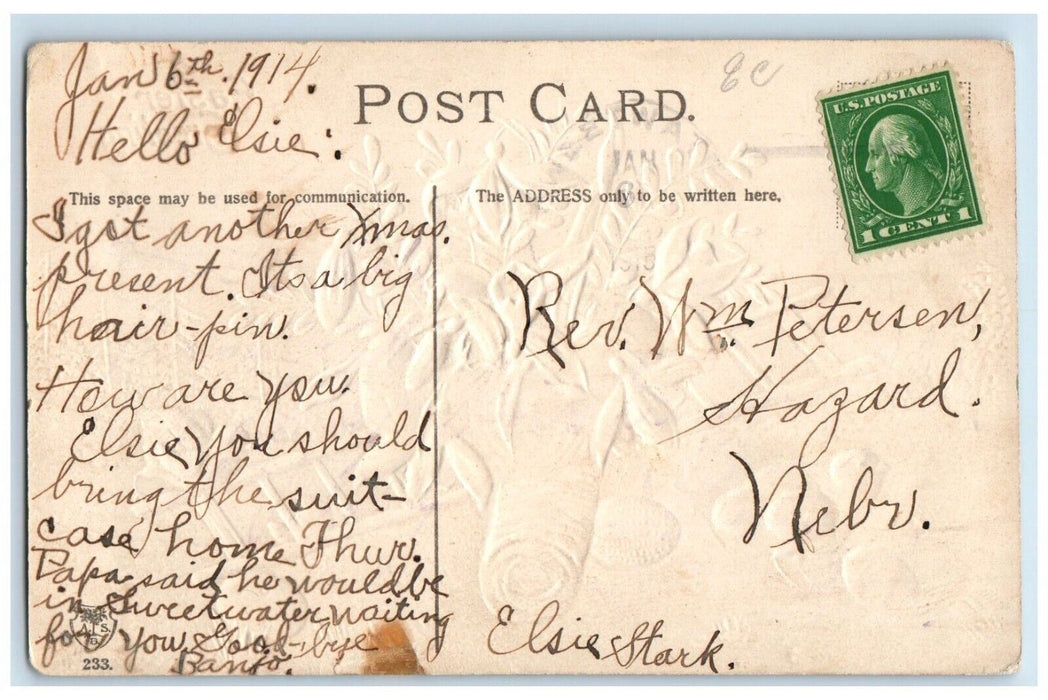 Jan 6th. 1914.
Hello Elsie:
POST CARD.
EC
U.S. POSTAGE
1 CENT 1
JAN
This space may be used for communication.
The ADDRESS only to be written here.
I got another Xmas.
present. Its a big
hair-pin.
How are you.
Elsie you should
bring the suit-
case home Thur.
Papa said he would be
in Sweetwater waiting
for you. Good-bye
Banjo.
233.
Rev. Wm. Petersen,
Hazard.
Nebr.
Elsie Stark.